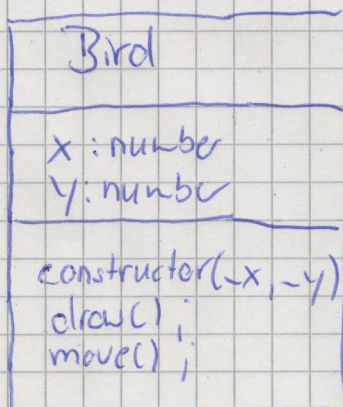 Bird
x : number
y : number
constructor(_x, _y)
draw() ;
move() ;